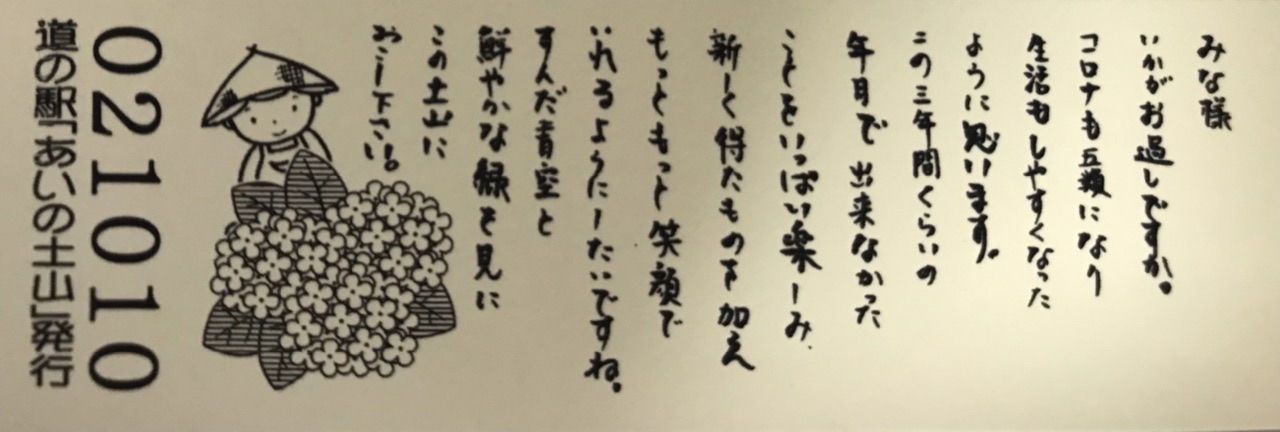 みな様
いかがお過しですか。
コロナも五類になり
生活もしやすくなった
ように思います。
この三年間くらいの
年月で出来なかった
ことをいっぱい楽しみ
新しく得たものを加え
もっともっと笑顔で
いれるようにしたいですね。
すんだ青空と
鮮やかな緑を見に
この土山に
おこし下さい。
021010
道の駅「あいの土山」発行